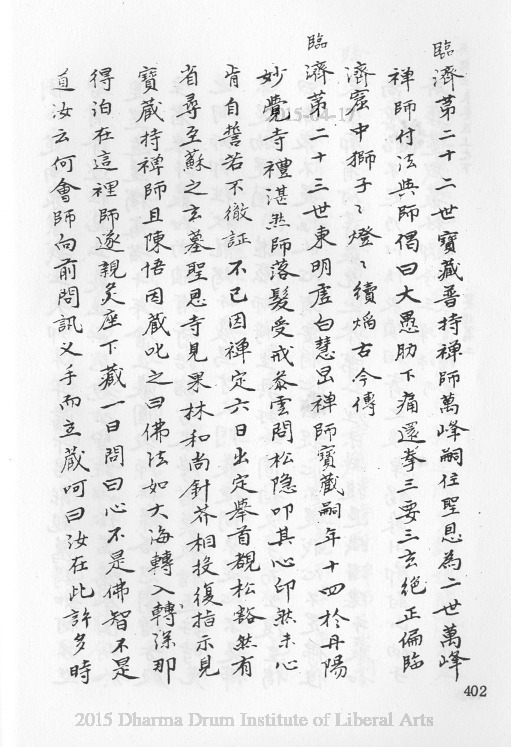 臨濟第二十二世寶藏普持禪師萬峰嗣住聖恩為二世萬峰
禪師付法與師偈曰大愚肋下痛還拳三要三玄絕正偏臨
濟窟中獅子〻燈〻續焰古今傳
臨濟第二十三世東明虛白慧旵禪師寶藏嗣年十四於丹陽
妙覺寺禮湛然師落髮受戒叅雲問松隱叩其心印然未心
肯自誓若不徹証不已因禪定六日出定舉首覩松豁然有
省尋至蘇之玄墓聖恩寺見果林和尚針芥相投復指示見
寶藏持禪師且陳悟因藏叱之曰佛法如大海轉入轉深那
得泊在這裡師遂親炙座下藏一日問曰心不是佛智不是
道汝云何會師向前問訊叉手而立藏呵曰汝在此許多時
402
2015-04-17
2015 Dharma Drum Institute of Liberal Arts